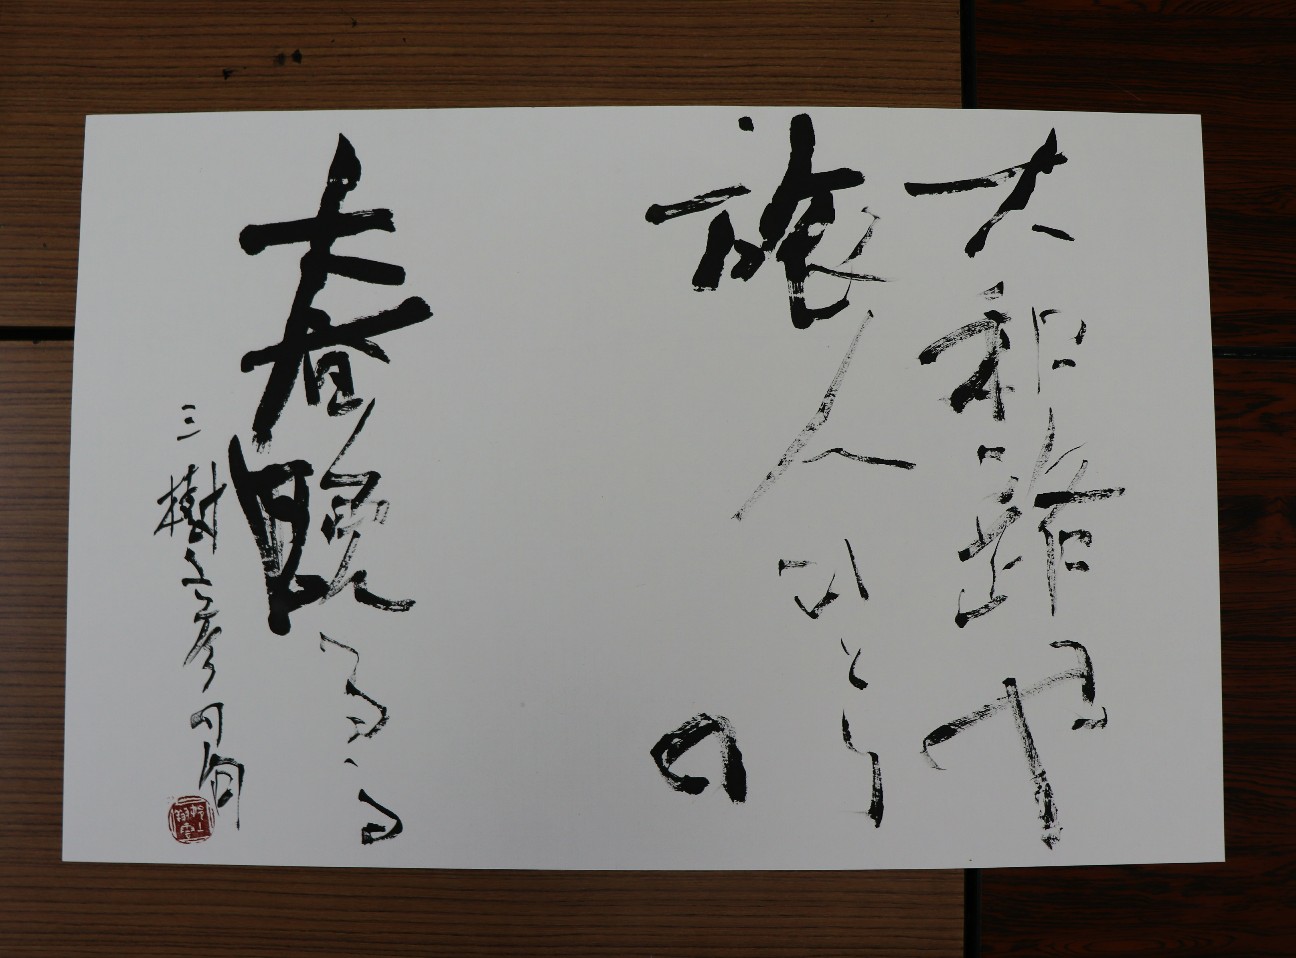 大和路や
旅人ひとり
の
春晩るる
三樹彦の句